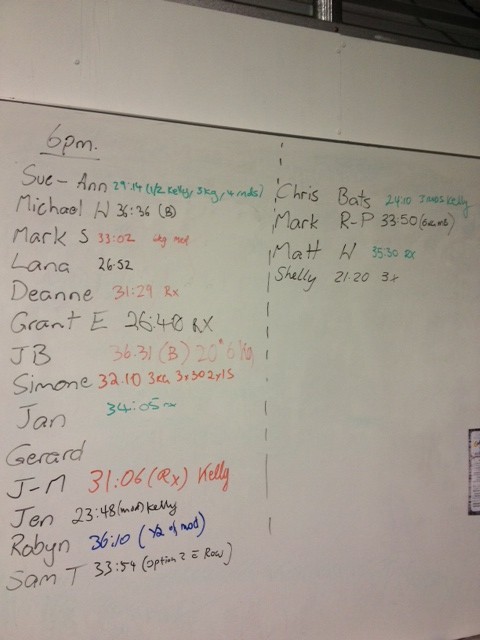 6pm.
Sue-Ann 29:14 (1/2 Kelly, 3kg, 4 mods)
Michael W 36:36 (B)
Mark S 33:02 leg mod
Lana 26:52
Deanne 31:29 Rx
Grant E 26:40 RX
JB 36.31 (B) 20" 6kg
Simone 32.10 3kg 3x30 2x15
Jan 34:05
Gerard
J-M 31:06 (Rx) Kelly
Jen 23:48 (mod) Kelly
Robyn 36:10 (1/2 of mod)
Sam T 33:54 (option 2 = Row)
Chris Bats 24:10 Kelly
Mark R-P 33:50
Matt W 35:30 RX
Shelly 21.20 3x